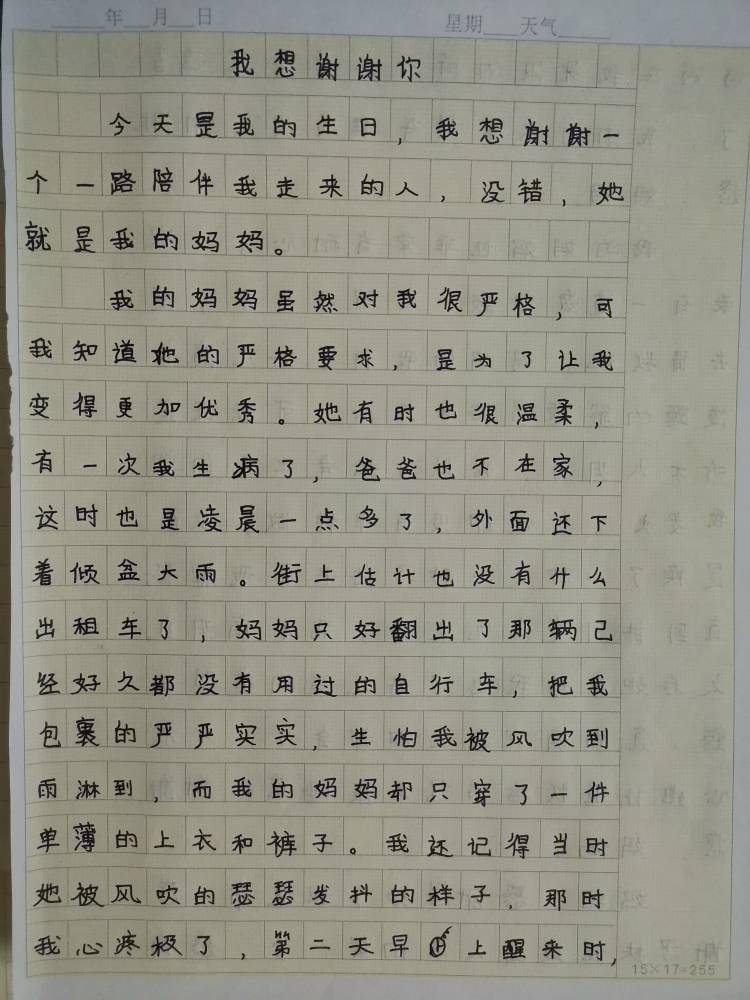 年 月 日 星期 天气
我想谢谢你
今天是我的生日，我想谢谢一
个一路陪伴我走来的人，没错，她
就是我的妈妈。
我的妈妈虽然对我很严格，可
我知道她的严格要求，是为了让我
变得更加优秀。她有时也很温柔，
有一次我生病了，爸爸也不在家，
这时也是凌晨一点多了，外面还下
着倾盆大雨。街上估计也没有什么
出租车了，妈妈只好翻出了那辆己
经好久都没有用过的自行车，把我
包裹的严严实实，生怕我被风吹到
雨淋到，而我的妈妈却只穿了一件
单薄的上衣和裤子。我还记得当时
她被风吹的瑟瑟发抖的样子，那时
我心疼极了，第二天早上醒来时，
15×17=255